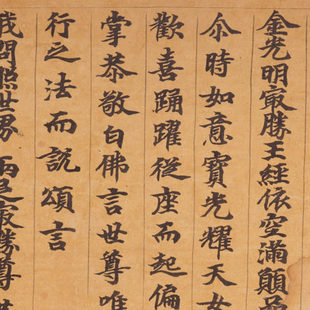 金光明㝡勝王經依空滿願品
尒時如意寶光耀天女
歡喜踊躍從座而起偏
掌恭敬白佛言世尊唯
行之法而說頌言
我問照世界 兩足㝡勝尊